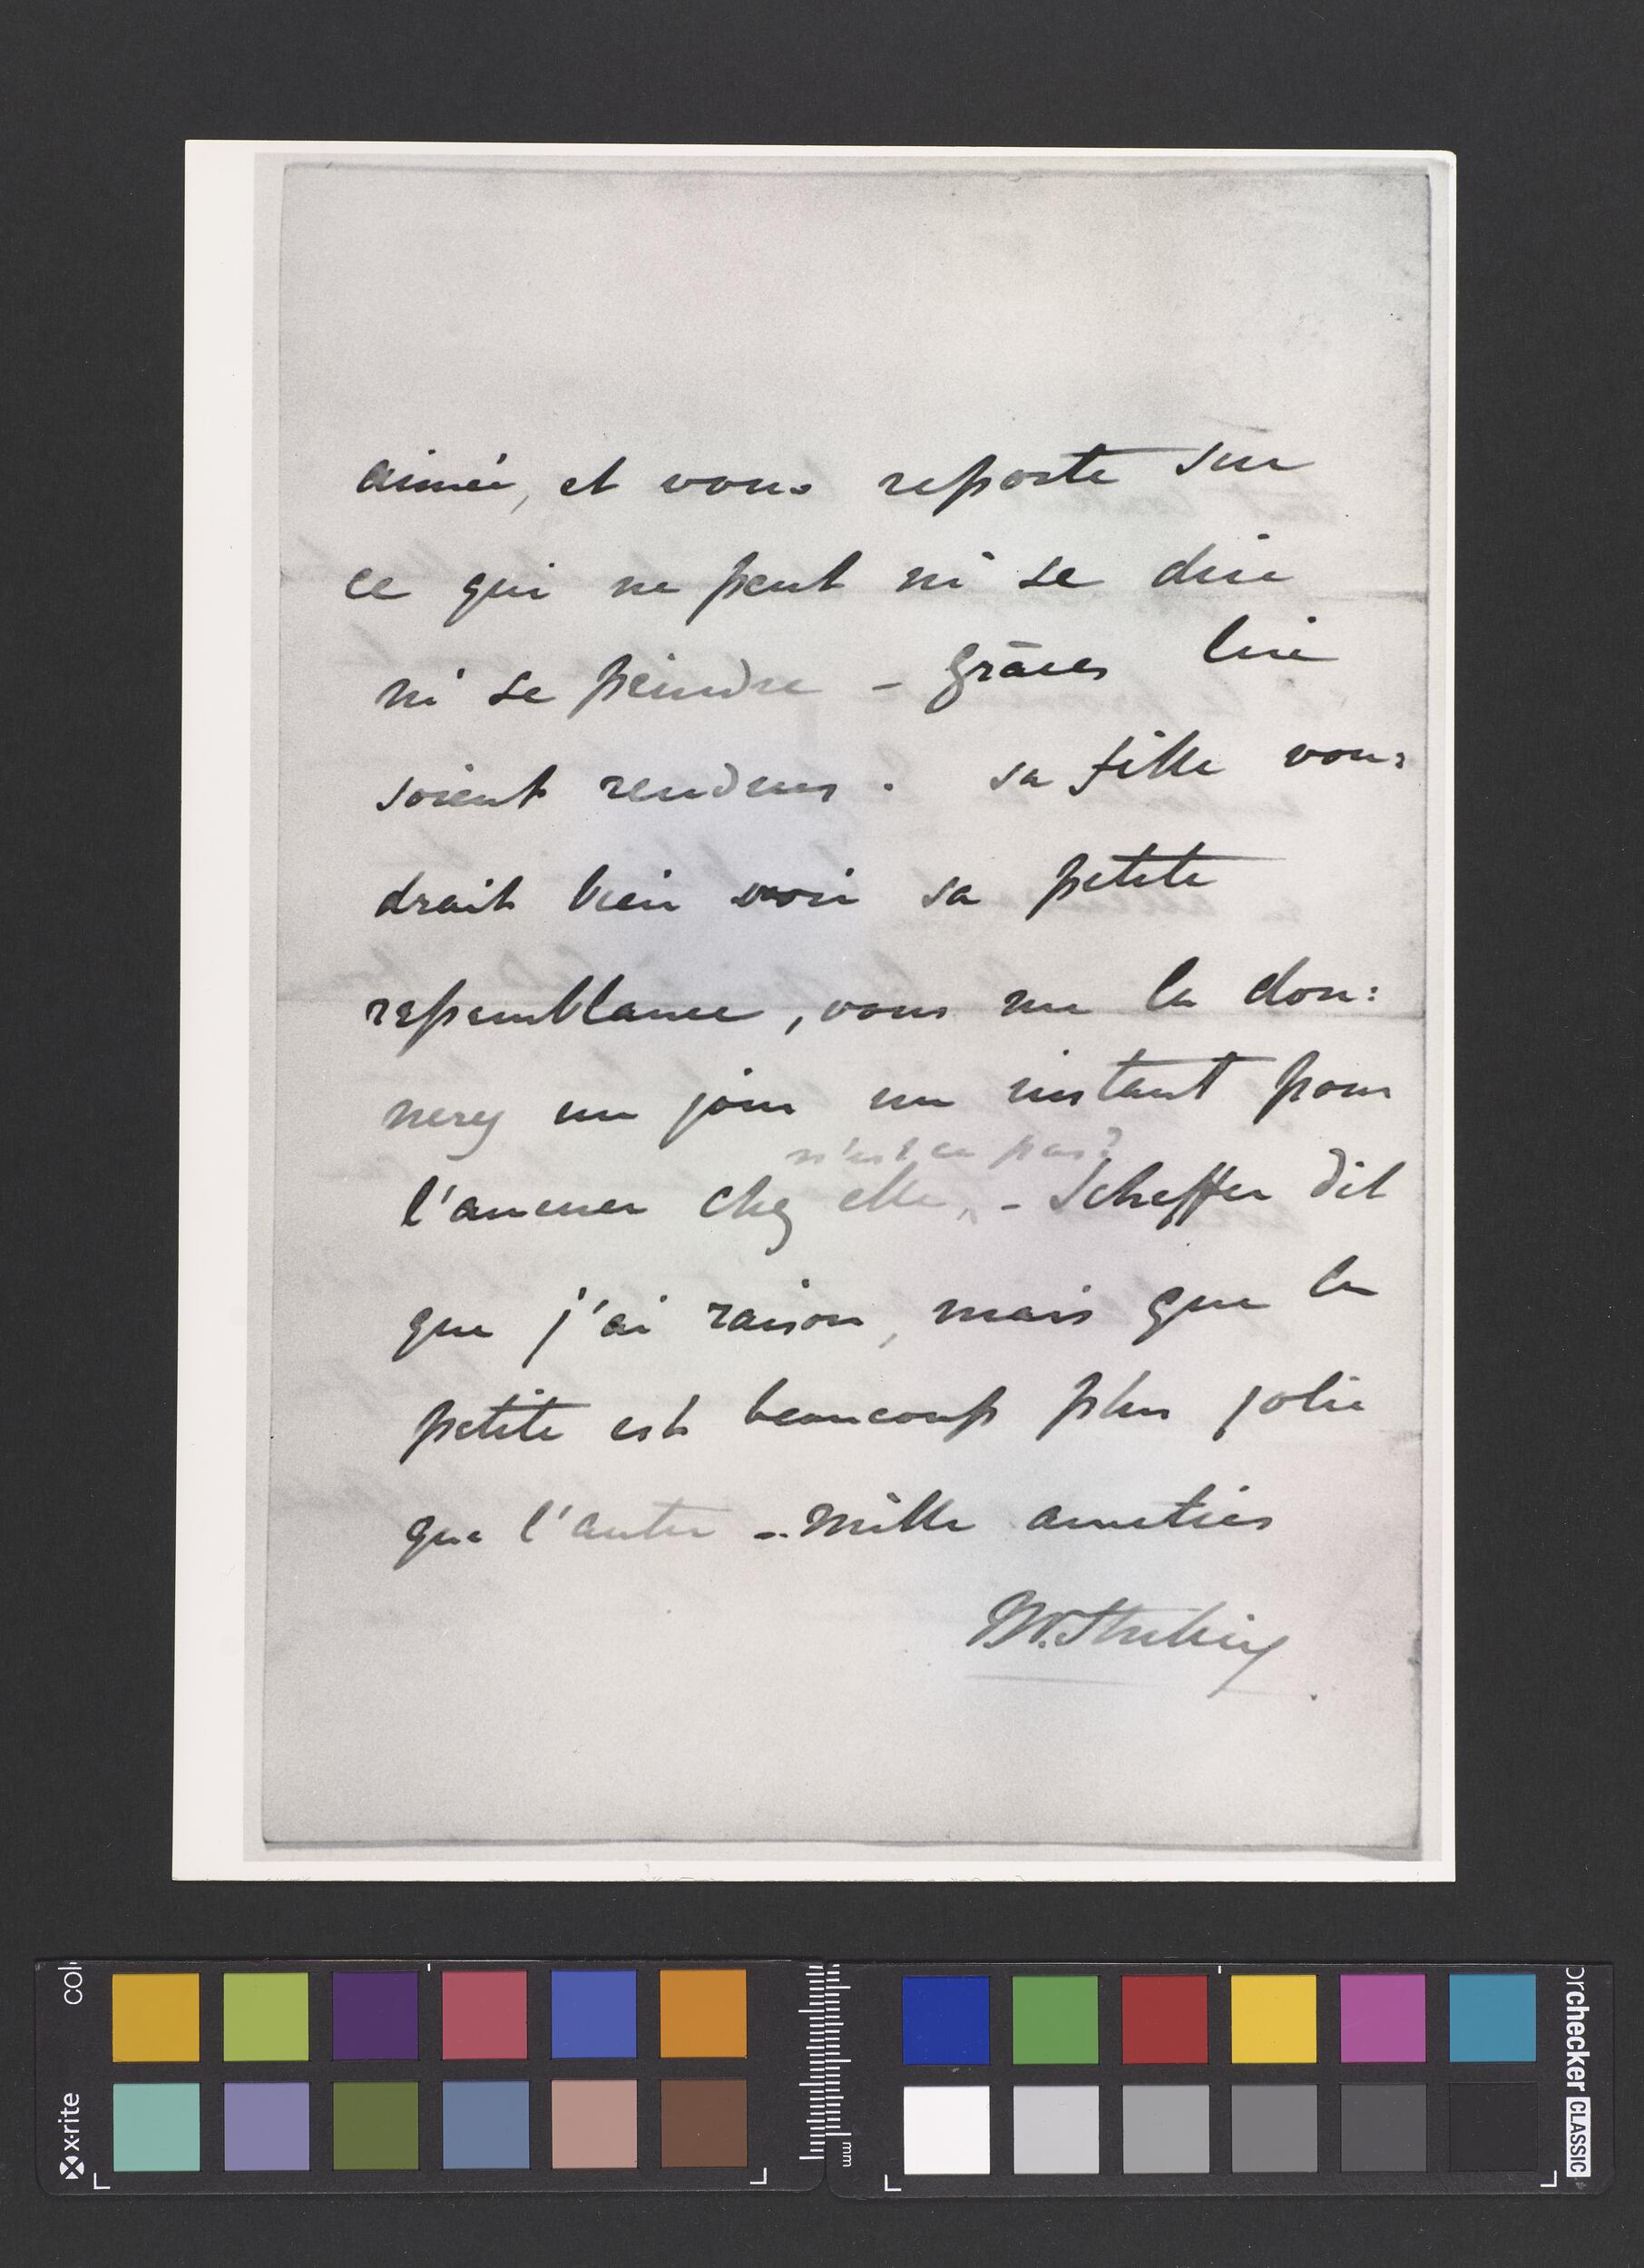 aimée, et vous reporte sur
ce qui ne peut ni se dire
ni se peindre - Grâces lui
soient rendues. sa fille vou:
drait bien voir sa petite
ressemblance, vous me la don:
nerez un jour un instant pour
n'est ce pas?
l'amener chez elle, - Scheffer dit
que j'ai raison, mais que la
petite est beaucoup plus jolie
que l'autre -. mille amitiés
colorchecker CLASSIC
x-rite
mm